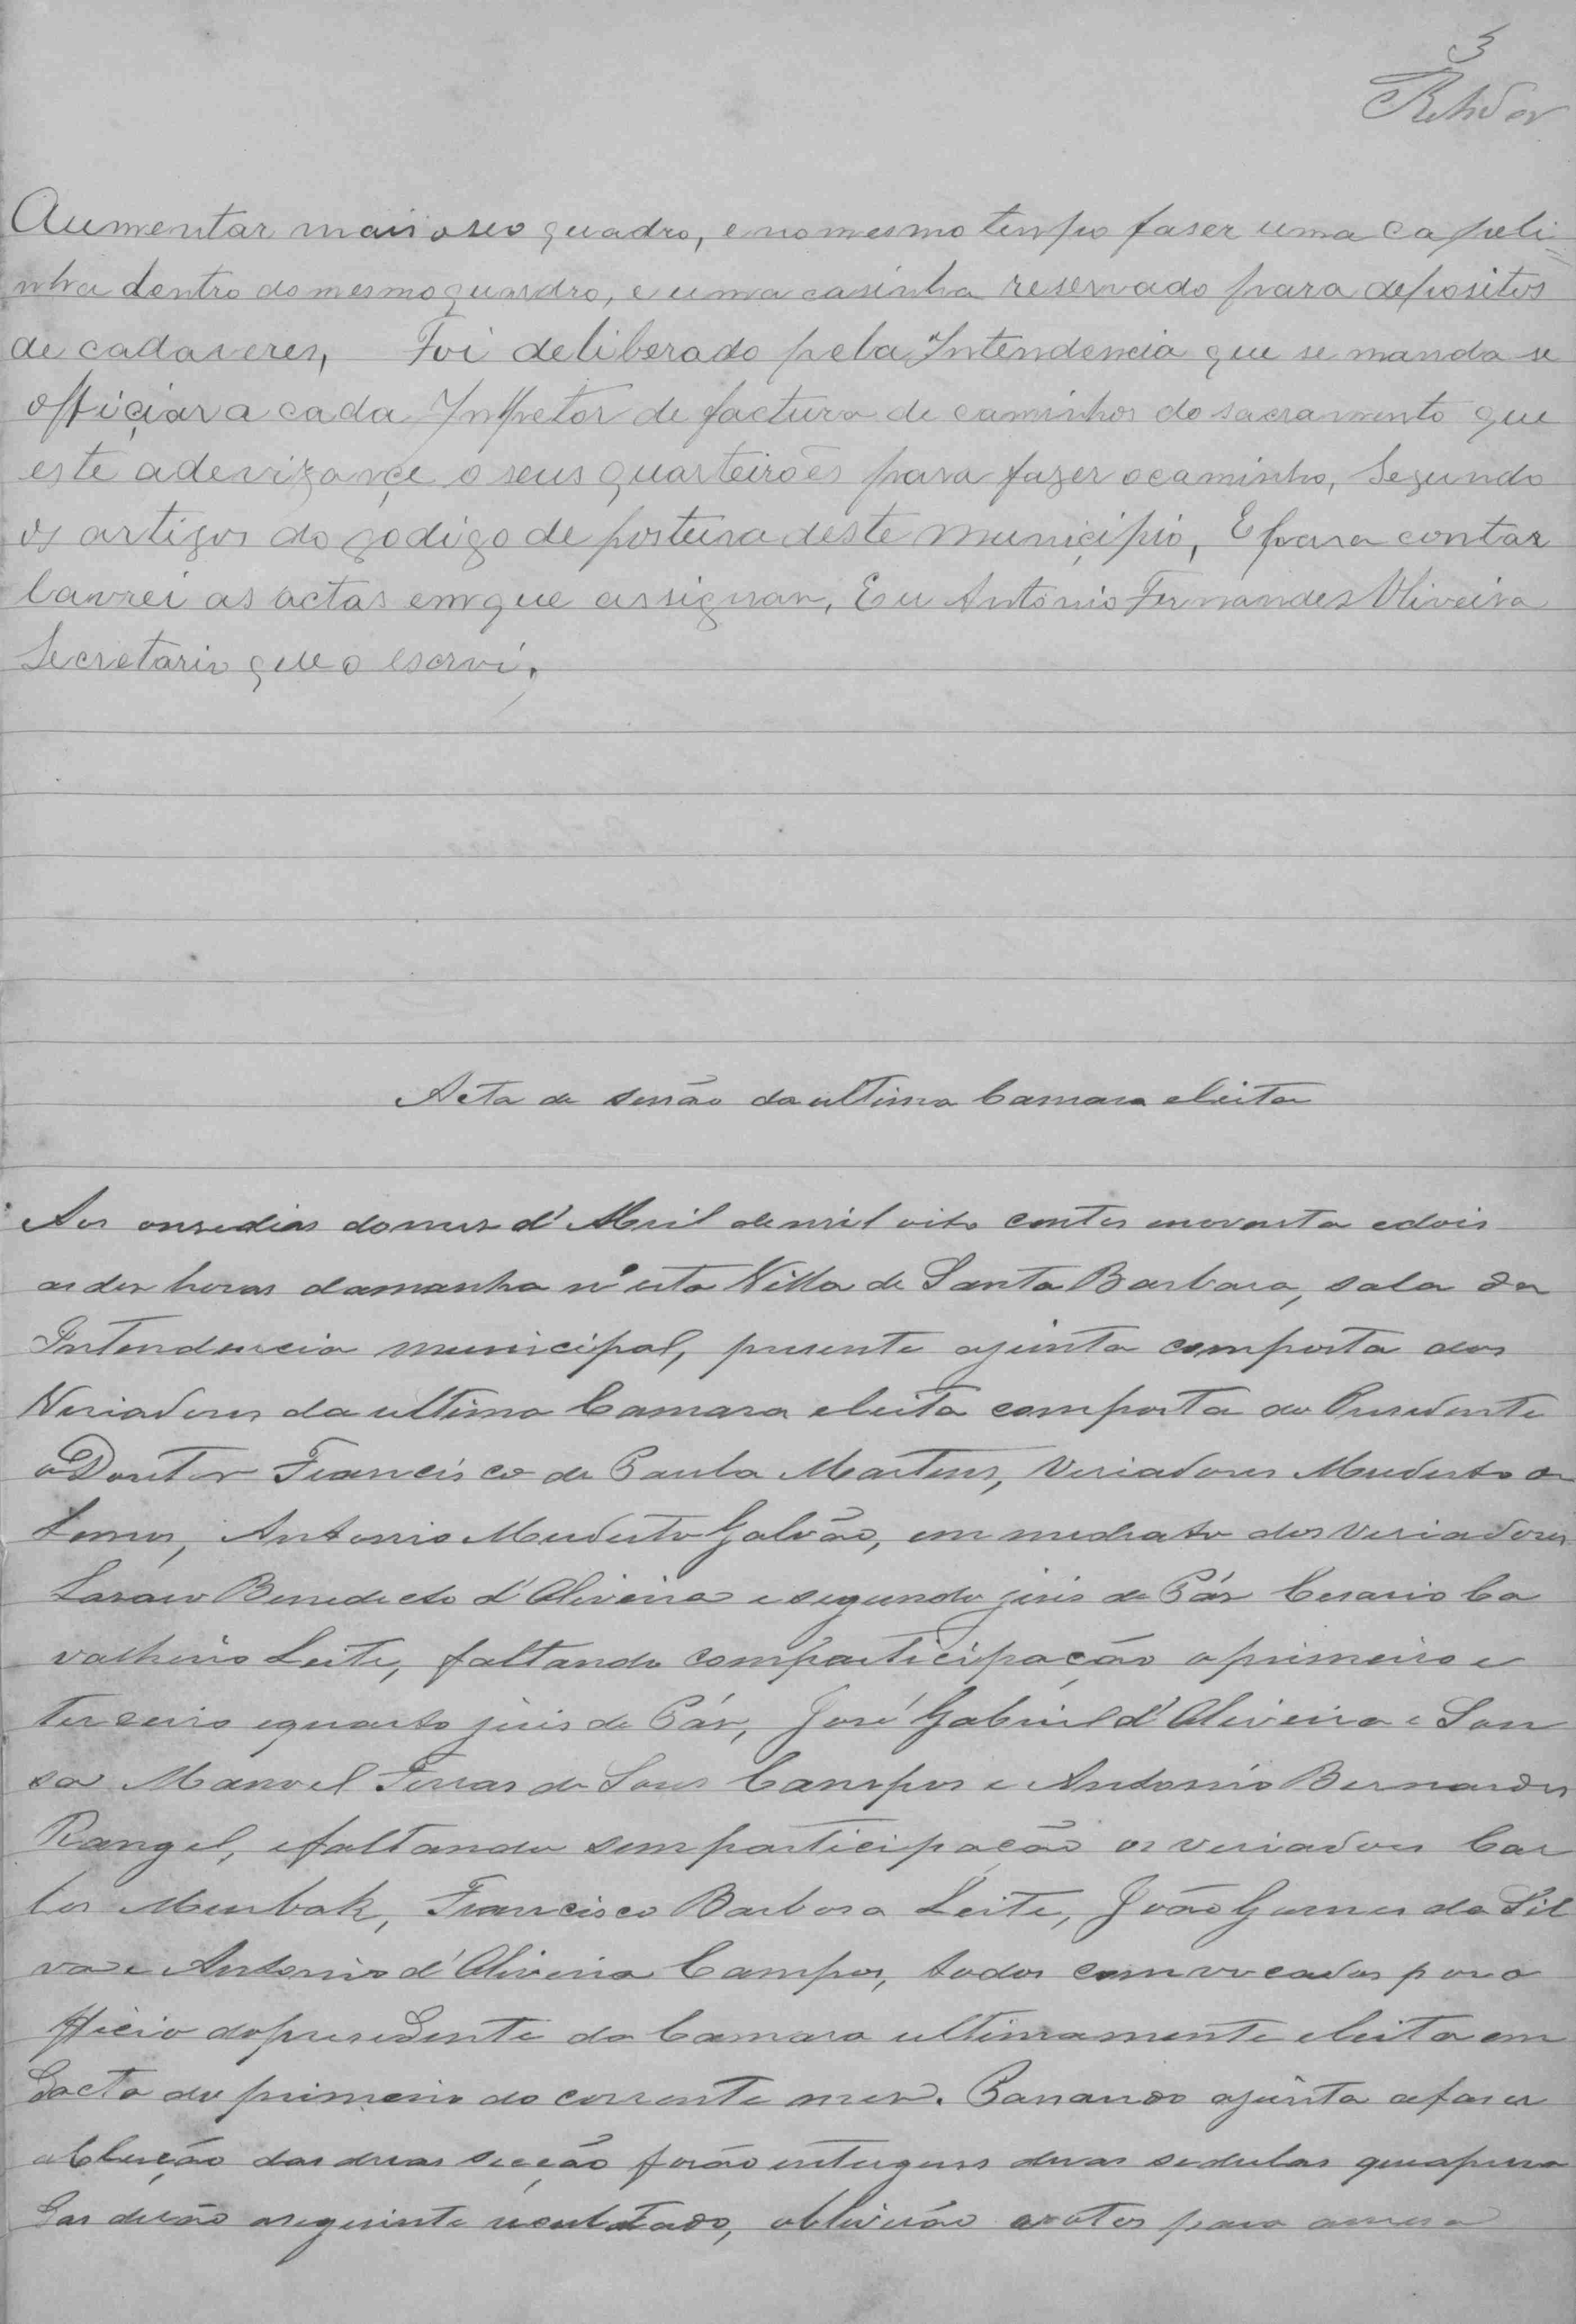 3
Aumentar mais o seo quadro, e no mesmo tempo faser uma capeli=
nha dentro do mesmo quardro, e uma casinha reservado para depositos
de cadaveres, Foi deliberado pela Intendencia que se manda se
officiar a cada Inspetor de factura de caminhos do sacramento que
este adevizançe o seus quarteirões para fazer o caminho, Segundo
os artigos do çodigo de posteira deste Municipio, E para contar
lavrei as actas em que assignan, Eu Antonio Fernandes Oliveira
Secretario que o escrvi,
Acta da sessão da ultima Camara eleita
Aos onse dias do mes d'Abril de mil oito centos enoventa e dois
as des horas damanha n'esta Villa de Santa Barbara, sala da
Intendencia municipal, presente ajunta composta dos
Veriadores da ultima Camara eleita composta do Presedente
o Doutor Francisco de Paula Martins, Veriadores Mudesto de
Lemos, Antonio Mudesto Galvão, emmediato dos veriadores
Lasaro Benedicto d'Oliveira e segundo juis de Pás Cesario Ca
valheiro Leite, faltando comparticipação o primeiro e
terceiro equarto juis de Pás, José Gabriel d'Oliveira e Sou
sa Manoel Ferras de Sous Campos e Antonio Bernardes
Rangel, efaltando semparticipação os veriadores Car
los Murbak, Francisco Barbosa Leite, João Gomes da Sil
va e Antonio d'Oliveira Campos, todos comvocados por o
fficio dopresidente da Camara ultimamente eleita em
Dacta do primeiro do corrente mes. Passando ajunta afaser
aEleição das duas secção forão entregues duas sedulas que apura
das derão aseguinte resultado, obtiverão votos para amesa